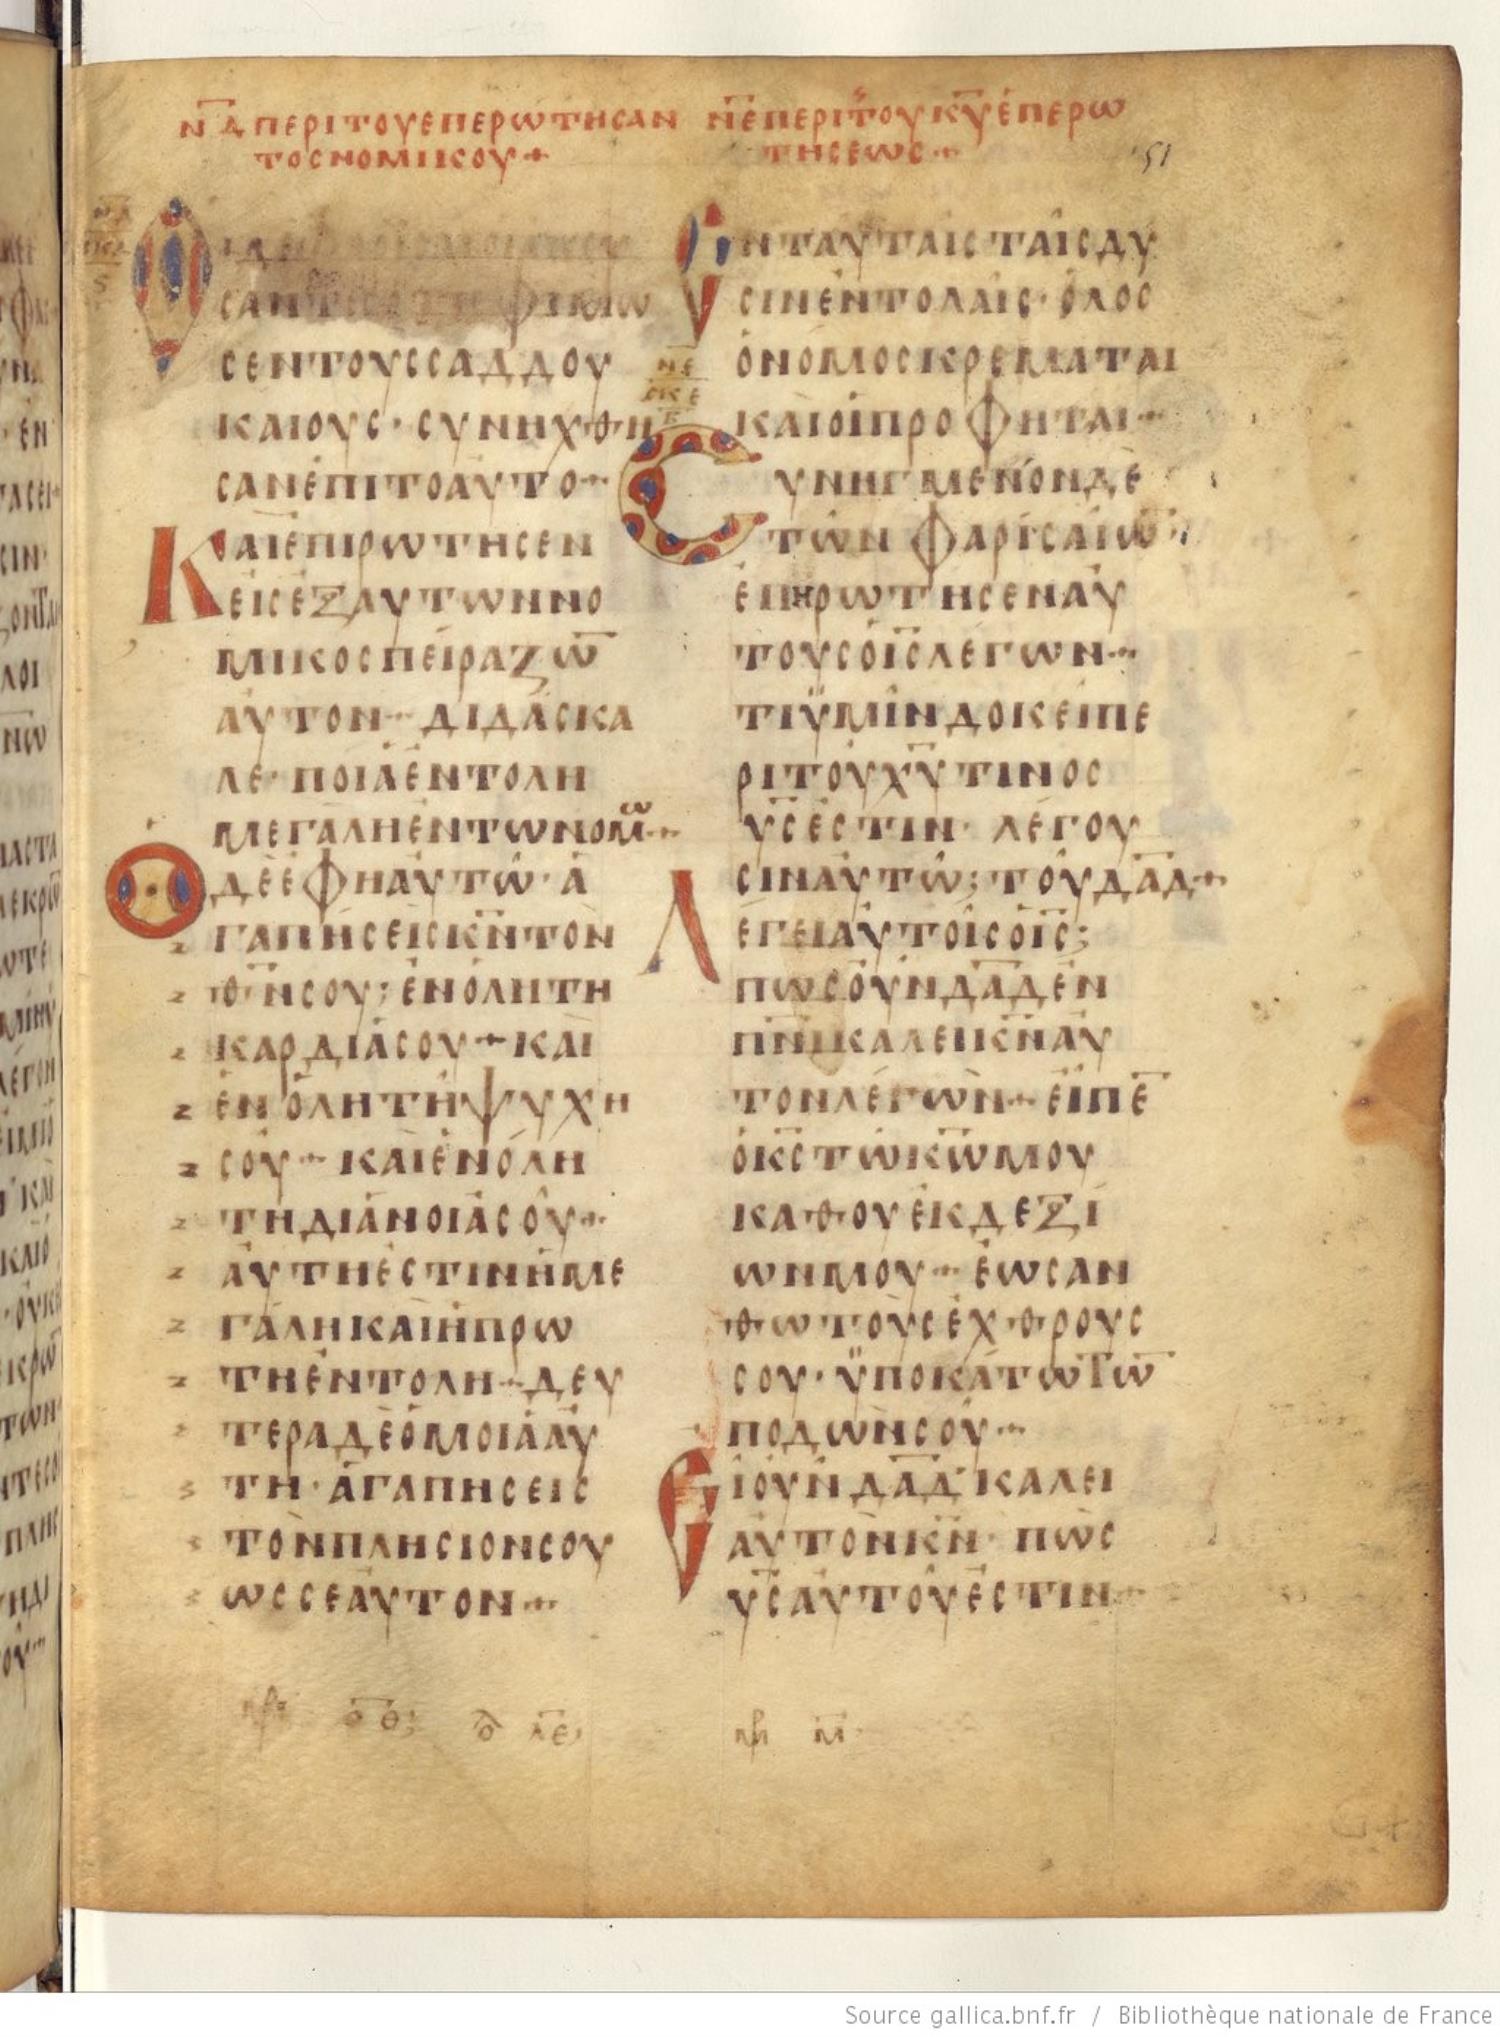 Ν͞Δ ΠΕΡΙ ΤΟΥ ΕΠΕΡΩΤΗΣΑΝ
ΤΟΣ ΝΟΜΙΚΟΥ +
Ν͞Ε ΠΕΡΙ ΤΟΥ Κ͞Υ ΕΠΕΡΩ
ΤΗΣΕΩΣ
51
ϹΕΝΤΟΥϹϹΑΔΔΟΥ
ΚΑΙΟΥϹ· ϹΥΝΗΧΘΗ
ϹΑΝΕΠΙΤΟΑΥΤΟ
ΚΑΙΕΠΙΡΩΤΗϹΕΝ
ΕΙϹΕΞΑΥΤΩΝΝΟ
ΜΙΚΟϹΠΕΙΡΑΖΩ͞
ΑΥΤΟΝ ΔΙΔΑϹΚΑ
ΛΕ· ΠΟΙΑΕΝΤΟΛΗ
ΜΕΓΑΛΗΕΝΤΩΝΟΜΩ͂
ΟΔΕΕΦΗΑΥΤΩ· Α
ΓΑΠΗϹΕΙϹΚ͞ΝΤΟΝ
Θ͞ΝϹΟΥ; ΕΝΟΛΗΤΗ
ΚΑΡΔΙΑϹΟΥ + ΚΑΙ
ΕΝΟΛΗΤΗΨΥΧΗ
ϹΟΥ ΚΑΙΕΝΟΛΗ
ΤΗΔΙΑΝΟΙΑϹΟΥ
ΑΥΤΗΕϹΤΙΝΗΜΕ
ΓΑΛΗΚΑΙΗΠΡΩ
ΤΗΕΝΤΟΛΗ ΔΕΥ
ΤΕΡΑΔΕΟΜΟΙΑΑΥ
ΤΗ· ΑΓΑΠΗϹΕΙϹ
ΤΟΝΠΛΗϹΙΟΝϹΟΥ
ΩϹϹΕΑΥΤΟΝ
ΕΝΤΑΥΤΑΙϹΤΑΙϹΔΥ
ϹΙΝΕΝΤΟΛΑΙϹ· ΟΛΟϹ
ΟΝΟΜΟϹΚΡΕΜΑΤΑΙ
ΚΑΙΟΙΠΡΟΦΗΤΑΙ
ϹΥΝΗΓΜΕΝΟΝΔΕ
ΤΩΝΦΑΡΙϹΑΙΩ͞
ΕΠΗΡΩΤΗϹΕΝΑΥ
ΤΟΥϹΟΙ͞ϹΛΕΓΩΝ
ΤΙΫΜΙΝΔΟΚΕΙΠΕ
ΡΙΤΟΥΧ͞ΥΤΙΝΟϹ
Υ͞ϹΕϹΤΙΝ· ΛΕΓΟΥ
ϹΙΝΑΥΤΩ; ΤΟΥΔ͞ΑΔ +
ΛΕΓΕΙΑΥΤΟΙϹΟΙ͞Ϲ;
ΠΩϹΟΥΝΔ͞ΑΔΕΝ
Π͞ΝΙΚΑΛΕΙΚ͞ΝΑΥ
ΤΟΝΛΕΓΩΝ ΕΙΠΕ͞
ΟΚ͞ϹΤΩΚ͞ΩΜΟΥ
ΚΑΘΟΥΕΚΔΕΞΙ
ΩΝΜΟΥ ΕΩϹΑΝ
ΘΩΤΟΥϹΕΧΘΡΟΥϹ
ϹΟΥ· ΫΠΟΚΑΤΩΤΩ͞
ΠΟΔΩΝϹΟΥ
ΕΙΟΥΝΔ͞ΑΔ ΚΑΛΕΙ
ΑΥΤΟΝΚ͞Ν· ΠΩϹ
Υ͞ϹΑΥΤΟΥΕϹΤΙΝ
Source gallica.bnf.fr / Bibliothèque nationale de France